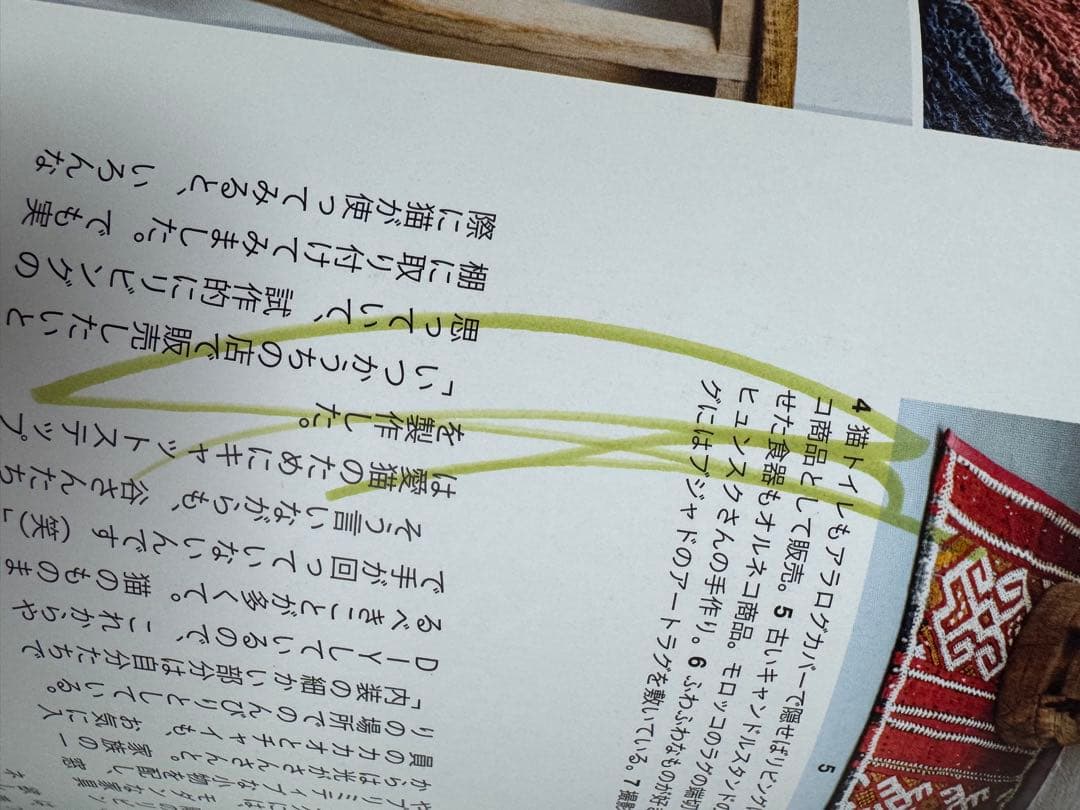 員のカカオとチャイも、お気に入
りの場所でのんびりとしている。
「内装の細かい部分は自分たちで
DIYしているので、これからや
るべきことが多くて。猫のものま
で手が回っていないんです（笑）」
そう言いながらも、谷さんたち
は愛猫のためにキャットステップ
を製作した。
「いつかうちの店で販売したいと
思っていて、試作的にリビングの
棚に取り付けてみました。でも実
際に猫が使ってみると、いろんな
4 猫トイレもアラログカバーで隠せばリビング
コ商品として販売。5 古いキャンドルスタンドの
せた食器もオルネコ商品。モロッコのラグの端切
ヒュンスクさんの手作り。6 ふわふわなものが好
グにはブジャドのアートラグを敷いている。7 撮影
5